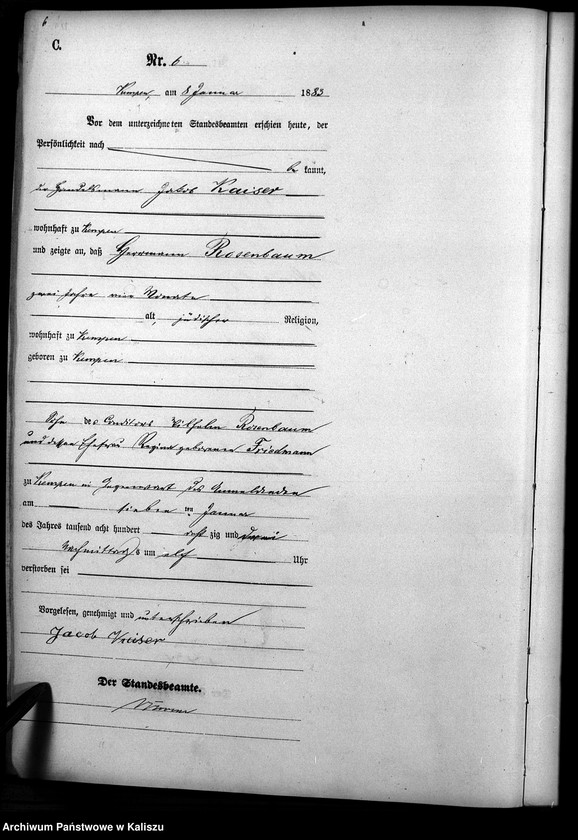 6
C.
Nr. 6
Kempen, am 8 Januar 1883
Vor dem unterzeichneten Standesbeamten erschien heute, der
Persönlichkeit nach
be kannt,
der Handelsmann Jakob Kaiser
wohnhaft zu Kempen
und zeigte an, daß Herrmann Rosenbaum
zwei Jahre Monate
alt, jüdischer Religion,
wohnhaft zu Kempen
geboren zu Kempen
Sohn des Conditors Wilhelm Rosenbaum
und dessen Ehefrau geborenen Friedmann
zu Kempen in Gegenwart des Anmeldenden
am sieben ten Januar
des Jahres tausend acht hundert acht zig und drei
Nachmittags um elf Uhr
verstorben sei
Vorgelesen, genehmigt und unterschrieben
Jacob Kaiser
Der Standesbeamte.
Archiwum Państwowe w Kaliszu